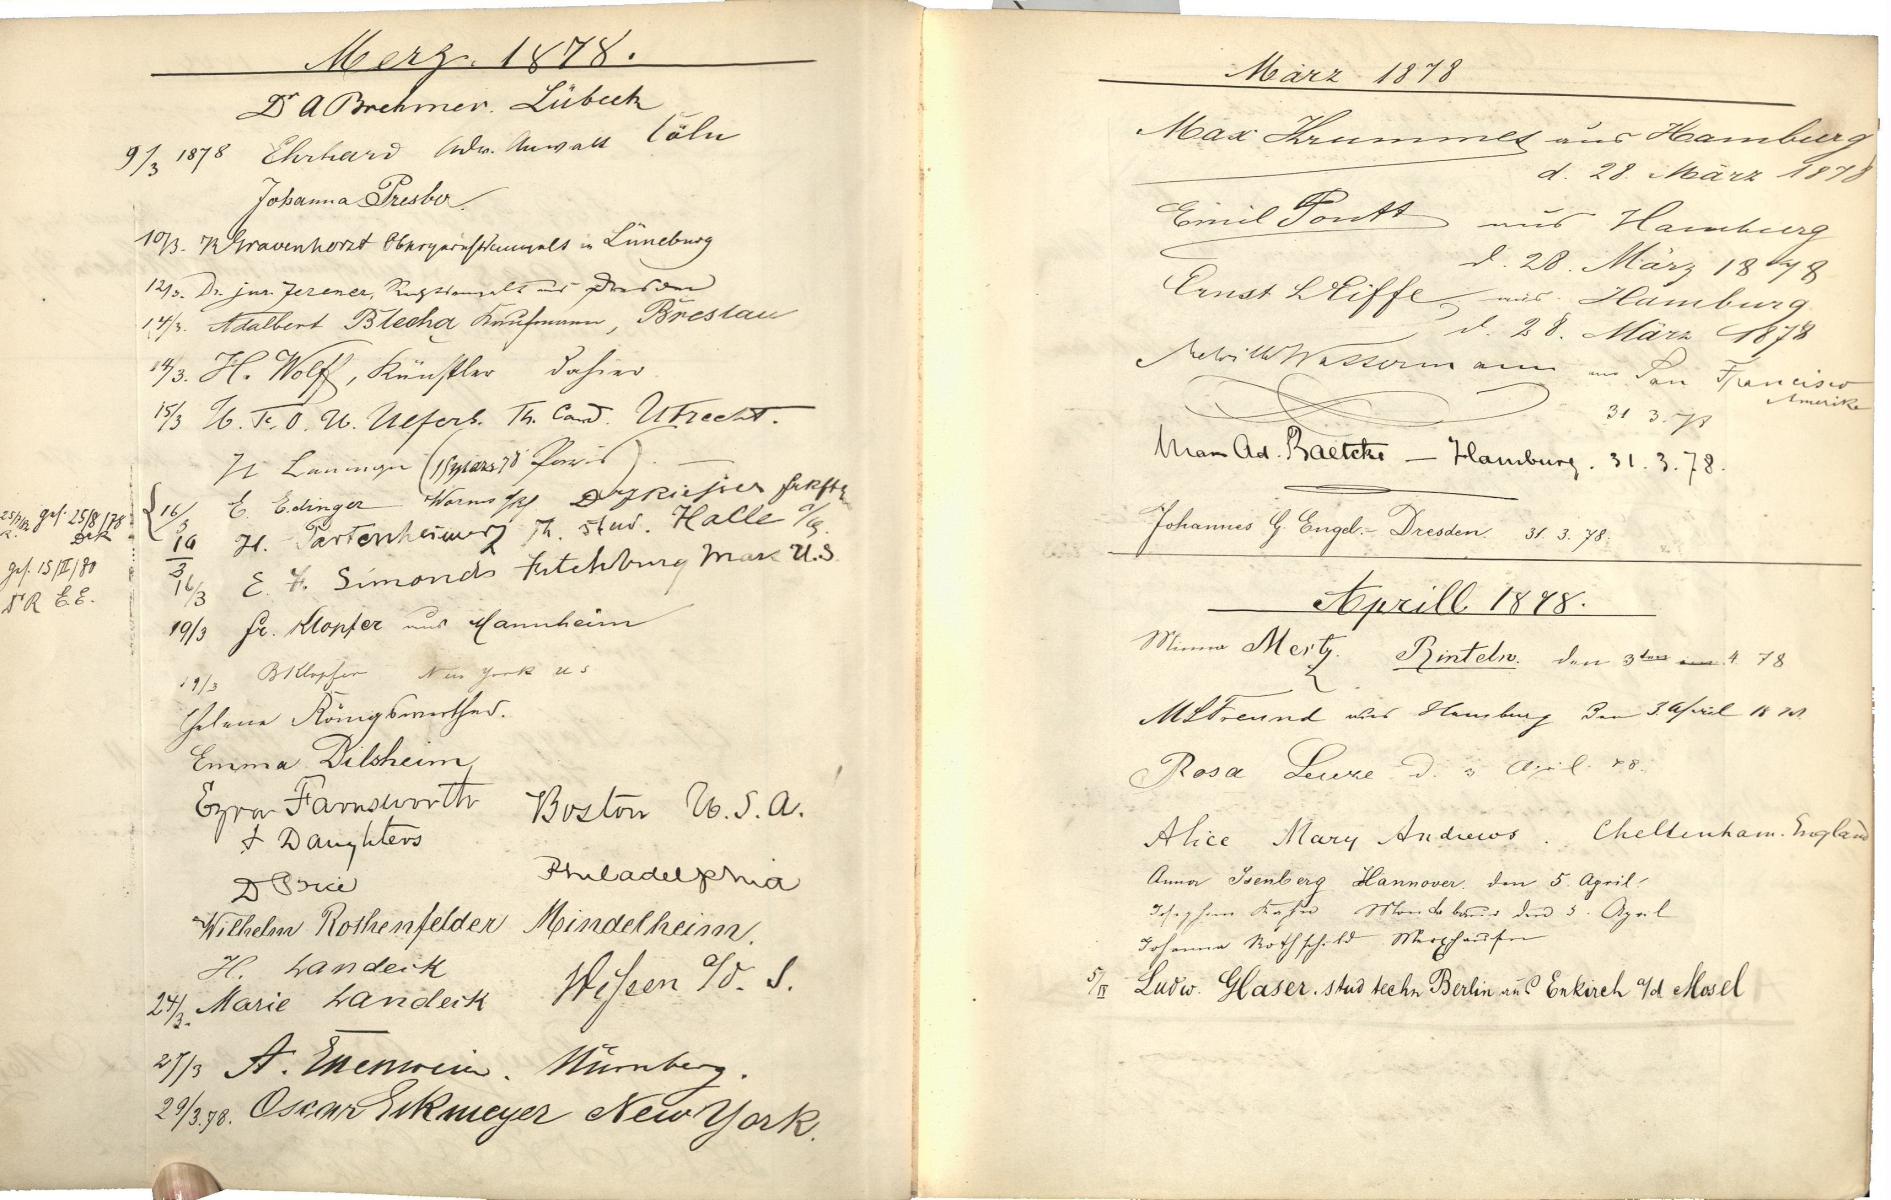 Merz. 1878.
Dr A Brehmer. Lübeck
9/3 1878 Ehrhard Adv. Anwalt Cöln
Johanna Presber
10/3. Gravenhorst Obergerichtsanwalt in Lüneburg
12/3. Dr. jur. Rechtsanwalt aus Dresden
14/3. Adalbert Blecha Kaufmann, Breslau
14/3. H. Wolff, Künstler dahier
15/3 Th. Cand. Utrecht.
(15 März 78 Paris)
16/3 E. Edinger Worms
16/3 H. Partenheimer Th. stud. Halle a/S.
16/3 E. F. Simonds Fitchburg Mass U.S
19/3 Fr. Klopfer aus Mannheim
19/3 B Klopfer New York U S
Helene Königswerther.
Emma Dilsheim
Ezra Farnsworth Boston U. S. A.
& Daughters
D Price Philadelphia
Wilhelm Rothenfelder Mindelheim.
H. Landeck
24/3. Marie Landeck Wissen a/d. S.
27/3 A. Essenwein. Nürnberg.
29/3.78. Oscar Eckmeyer New York.
gef. 25/8/78
gef. 15/II/80
E. E.
März 1878
Max Krummes aus Hamburg
d. 28. März 1878
Emil aus Hamburg
d. 28. März 1878
Ernst L Eiffe aus Hamburg
d. 28. März 1878
Wassermann aus San Francisco
Amerika
31 3. 78
Max Ad. Baetcke — Hamburg. 31. 3. 78.
Johannes G. Engel. — Dresden. 31. 3. 78.
Aprill 1878.
Minna Mertz. Rinteln. den 3ten 4 78
M L Freund aus Hamburg den 3. April 1878
Rosa d. 3 April. 78.
Alice Mary Andrews. Cheltenham. England
Anna Isenberg Hannover. den 5. April.
Josephine Kahn den 5. April
Johanna Rothschild
5/IV Ludw. Glaser. stud techn Berlin aus Enkirch a/d Mosel